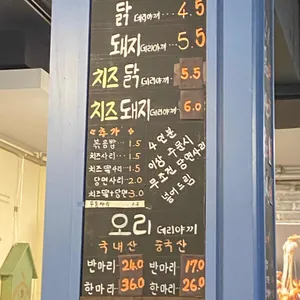 닭 데리야끼 4.5
돼지 데리야끼 5.5
치즈 닭 데리야끼 5.5
치즈 돼지 데리야끼 6.0
<추가>
볶음밥 1.5
치즈사리 1.5
치즈떡사리 1.5
당면사리 2.0
치즈떡+당면 3.0
4인분
이상 주문시
무조건 당면사리
넣어드림
오리 데리야끼
국내산 중국산
반마리 24.0 반마리 17.0
한마리 36.0 한마리 26.0